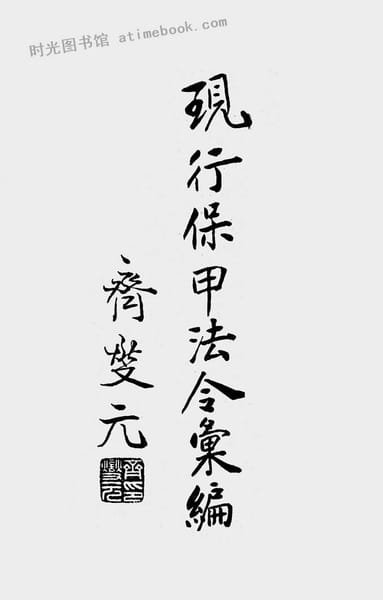 时光图书馆 atimebook.com
現行保甲法令彙編
齊燮元
齊燮元印